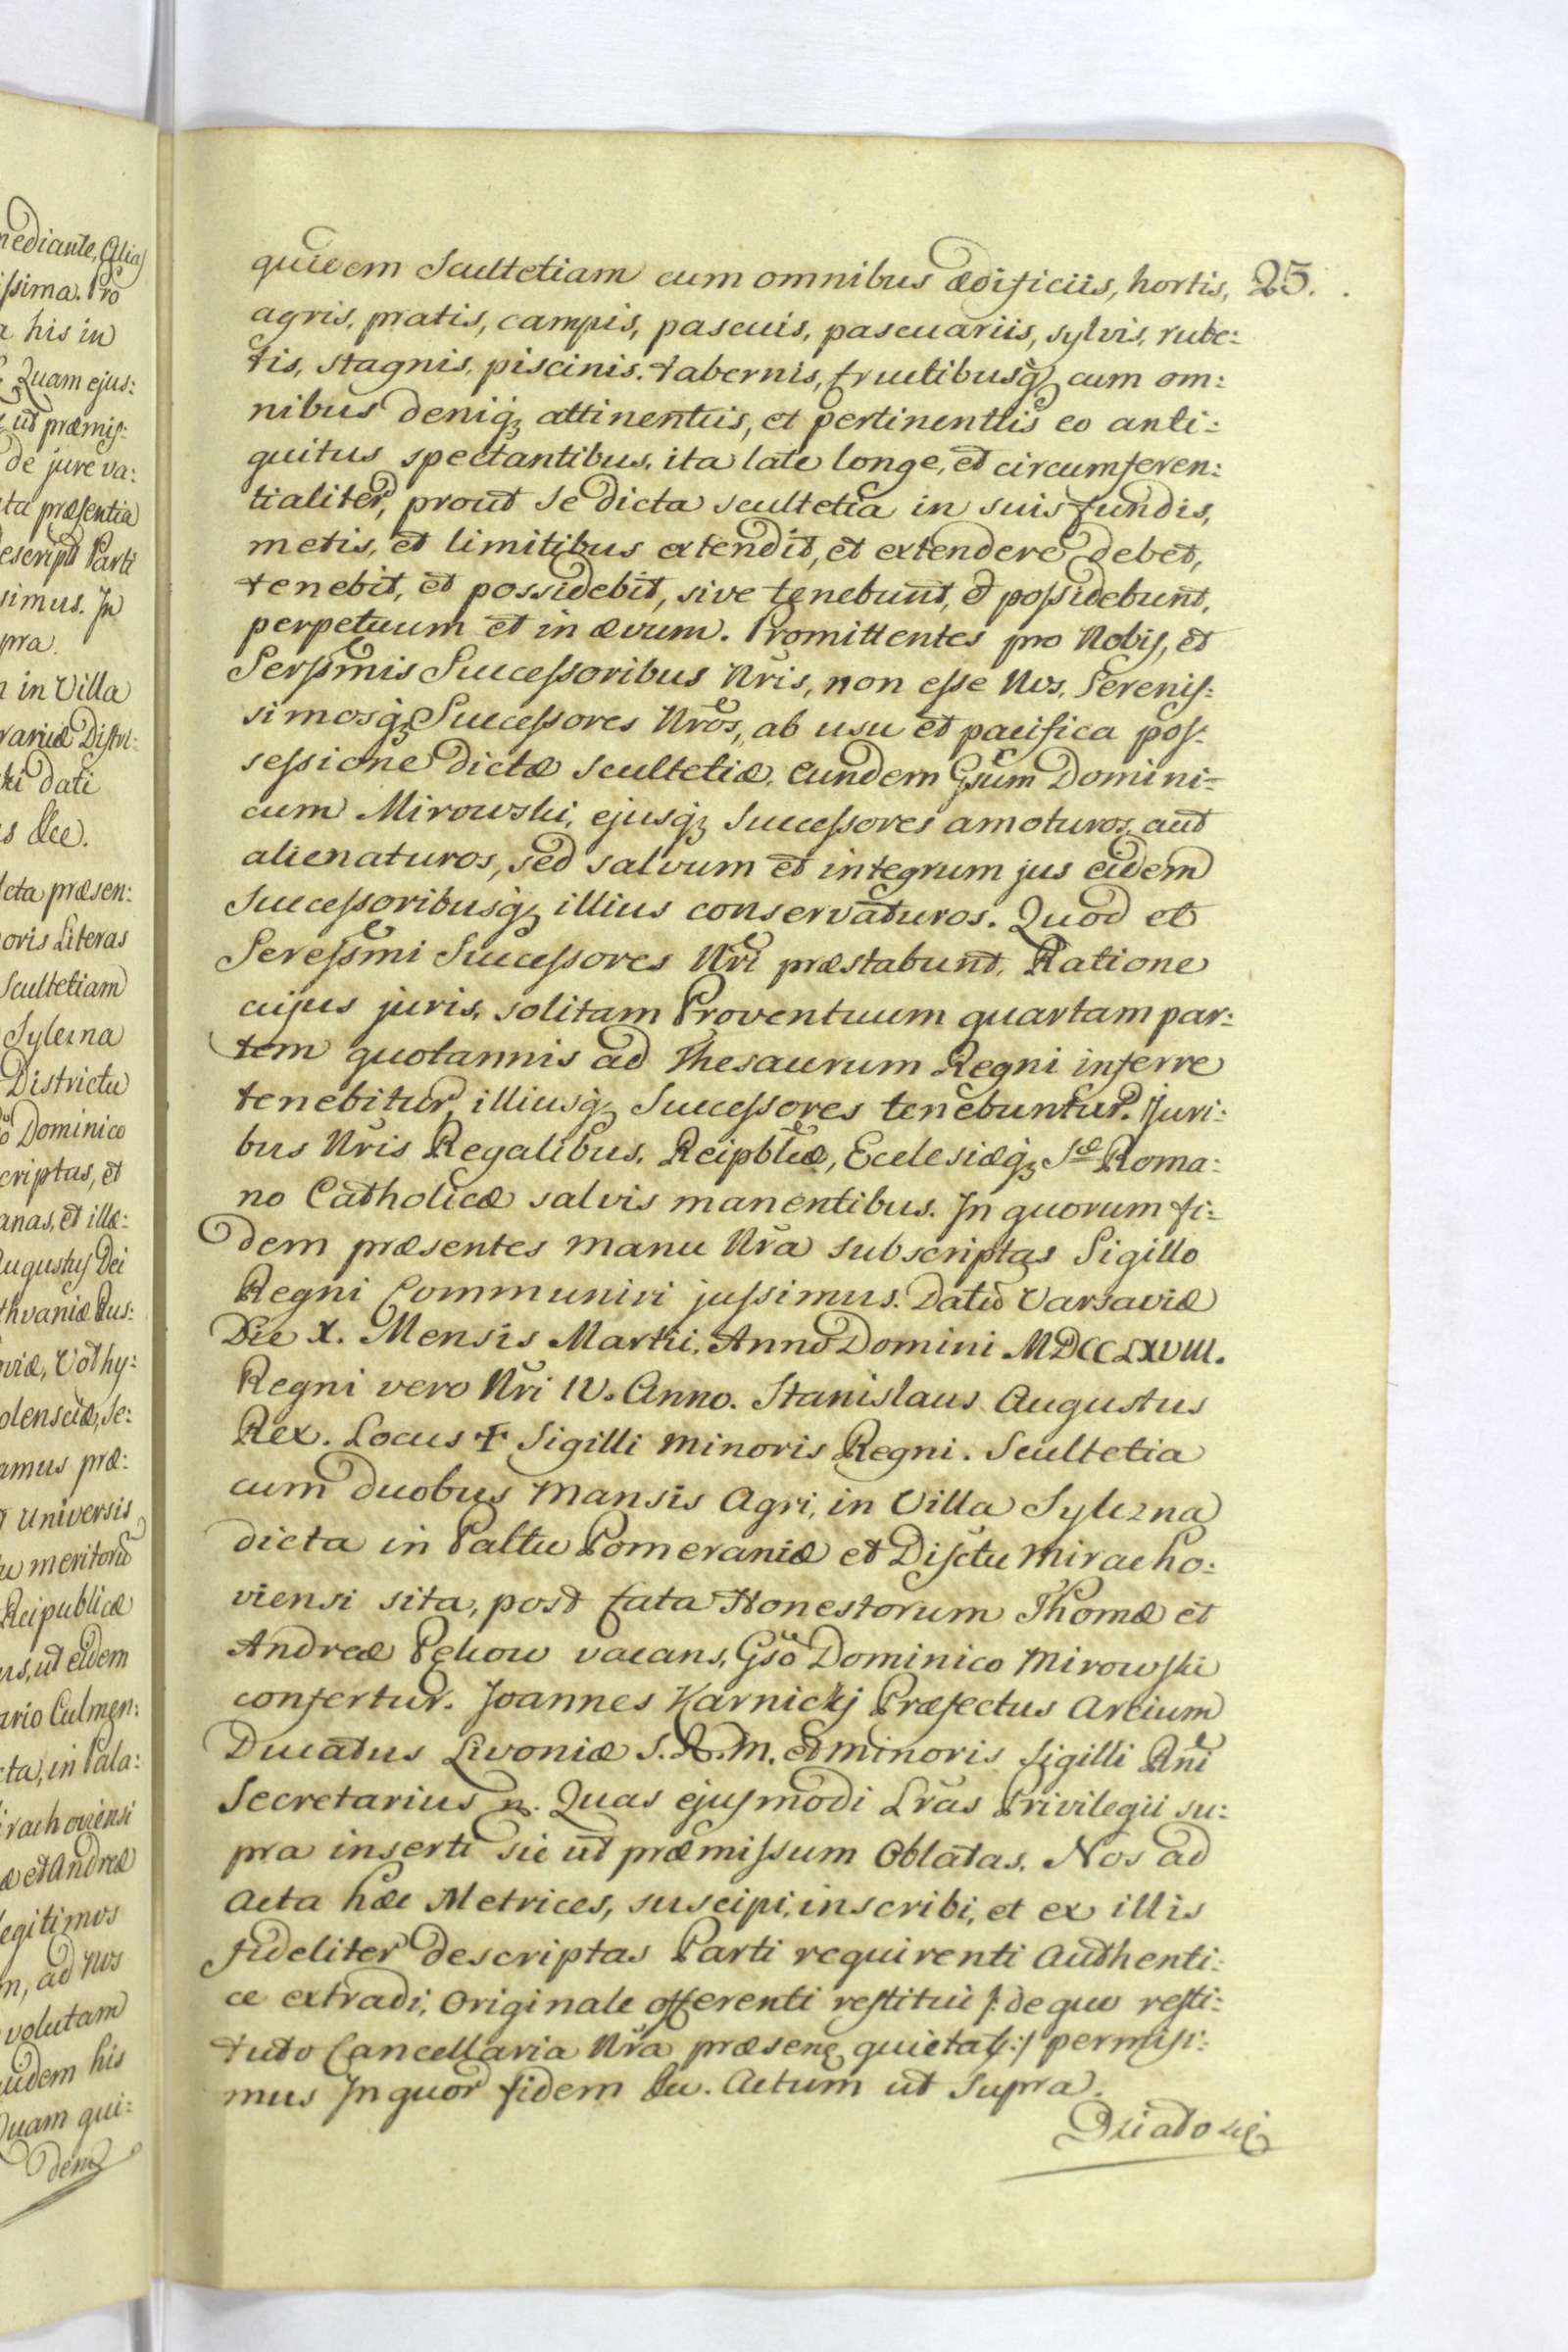 mediante, Alia
issima. Pro
a his in
Quam ejus:
ut præmis:
de jure va:
ta præsentia
escript Parti
simus. In
pra.
in Villa
variæ Distri:
ki dati
s &c.
cta præsen:
oris Literas
Scultetiam
Sylczna
Districtu
Dominico
criptas, et
anas, et illæ:
ugustus Dei
thvaniæ Rus:
viæ, Vothy:
olensciæ, Se:
amus præ:
universis
u meritorū
Reipublicæ
us, ut eidem
ario Culmen:
ta, in Pala:
irachoviensi
æ et Andreæ
legitimos
m, ad nos
volutam
udem his
Quam qui:
dem
quidem Scultetiam cum omnibus ædificiis, hortis, 25.
agris, pratis, campis, pascuis, pascuariis, sylvis, rube:
tis, stagnis, piscinis, tabernis, fructibusq̃ cum om:
nibus deniq̃ attinentiis, et pertinentiis eo anti:
quitus spectantibus, ita late longe, et circumferen:
tialiter, prout se dicta scultetia in suis fundis,
metis, et limitibus extendit, et extendere debet,
tenebit, et possidebit, sive tenebunt, et possidebunt,
perpetuum et in ævum. Promittentes pro Nobis, et
Serssmis Successoribus Nr̃is, non esse Nos, Serenis:
simosq̃ Successores Nr̃os, ab usu et pacifica pos:
sessione dictæ Scultetiæ, eundem Gsum Domini:
cum Mirowski, ejusq̃ Successores amoturos, aut
alienaturos, sed salvum et integrum jus eidem
Successoribusq̃ illius conservaturos. Quod et
Seressmi Successores Nr̃i præstabunt. Ratione
cujus juris, solitam Proventuum quartam par:
tem quotannis ad Thesaurum Regni inferre
tenebitur, illiusq̃ Successores tenebuntur. Juri:
bus Nr̃is Regalibus, Reipblcæ, Ecclesiæq̃ Sæ Roma:
no Catholicæ salvis manentibus. In quorum fi:
dem præsentes manu Nr̃a subscriptas Sigillo
Regni Communiri jussimus. Datū Varsaviæ
Die X. Mensis Martii, Anno Domini MDCCLXVIII.
Regni vero Nr̃i IV. Anno. Stanislaus Augustus
Rex. Locus ✝ Sigilli minoris Regni. Scultetia
cum duobus mansis Agri, in Villa Sylczna
dicta in Paltu Pomeraniæ et Disctu miracho:
viensi sita, post fata Honestorum Thomæ et
Andreæ Pękow vacans, Gsō Dominico Mirowski
confertur. Joannes Karnickj Præfectus Arcium
Ducatus Livoniæ S.R.M. et minoris Sigilli Rñi
Secretarius m. Quas ejusmodi Lr̃as Privilegii su:
pra inserti sic ut præmissum Oblatas. Nos ad
Acta hæc Metrices, suscipi, inscribi, et ex illis
fideliter descriptas Parti requirenti Authenti:
ce extradi, Originale offerenti restitui /: de quo resti:
tuto Cancellaria Nr̃a præsens quietat :/ permisi:
mus In quor fidem &c. Actum ut Supra.